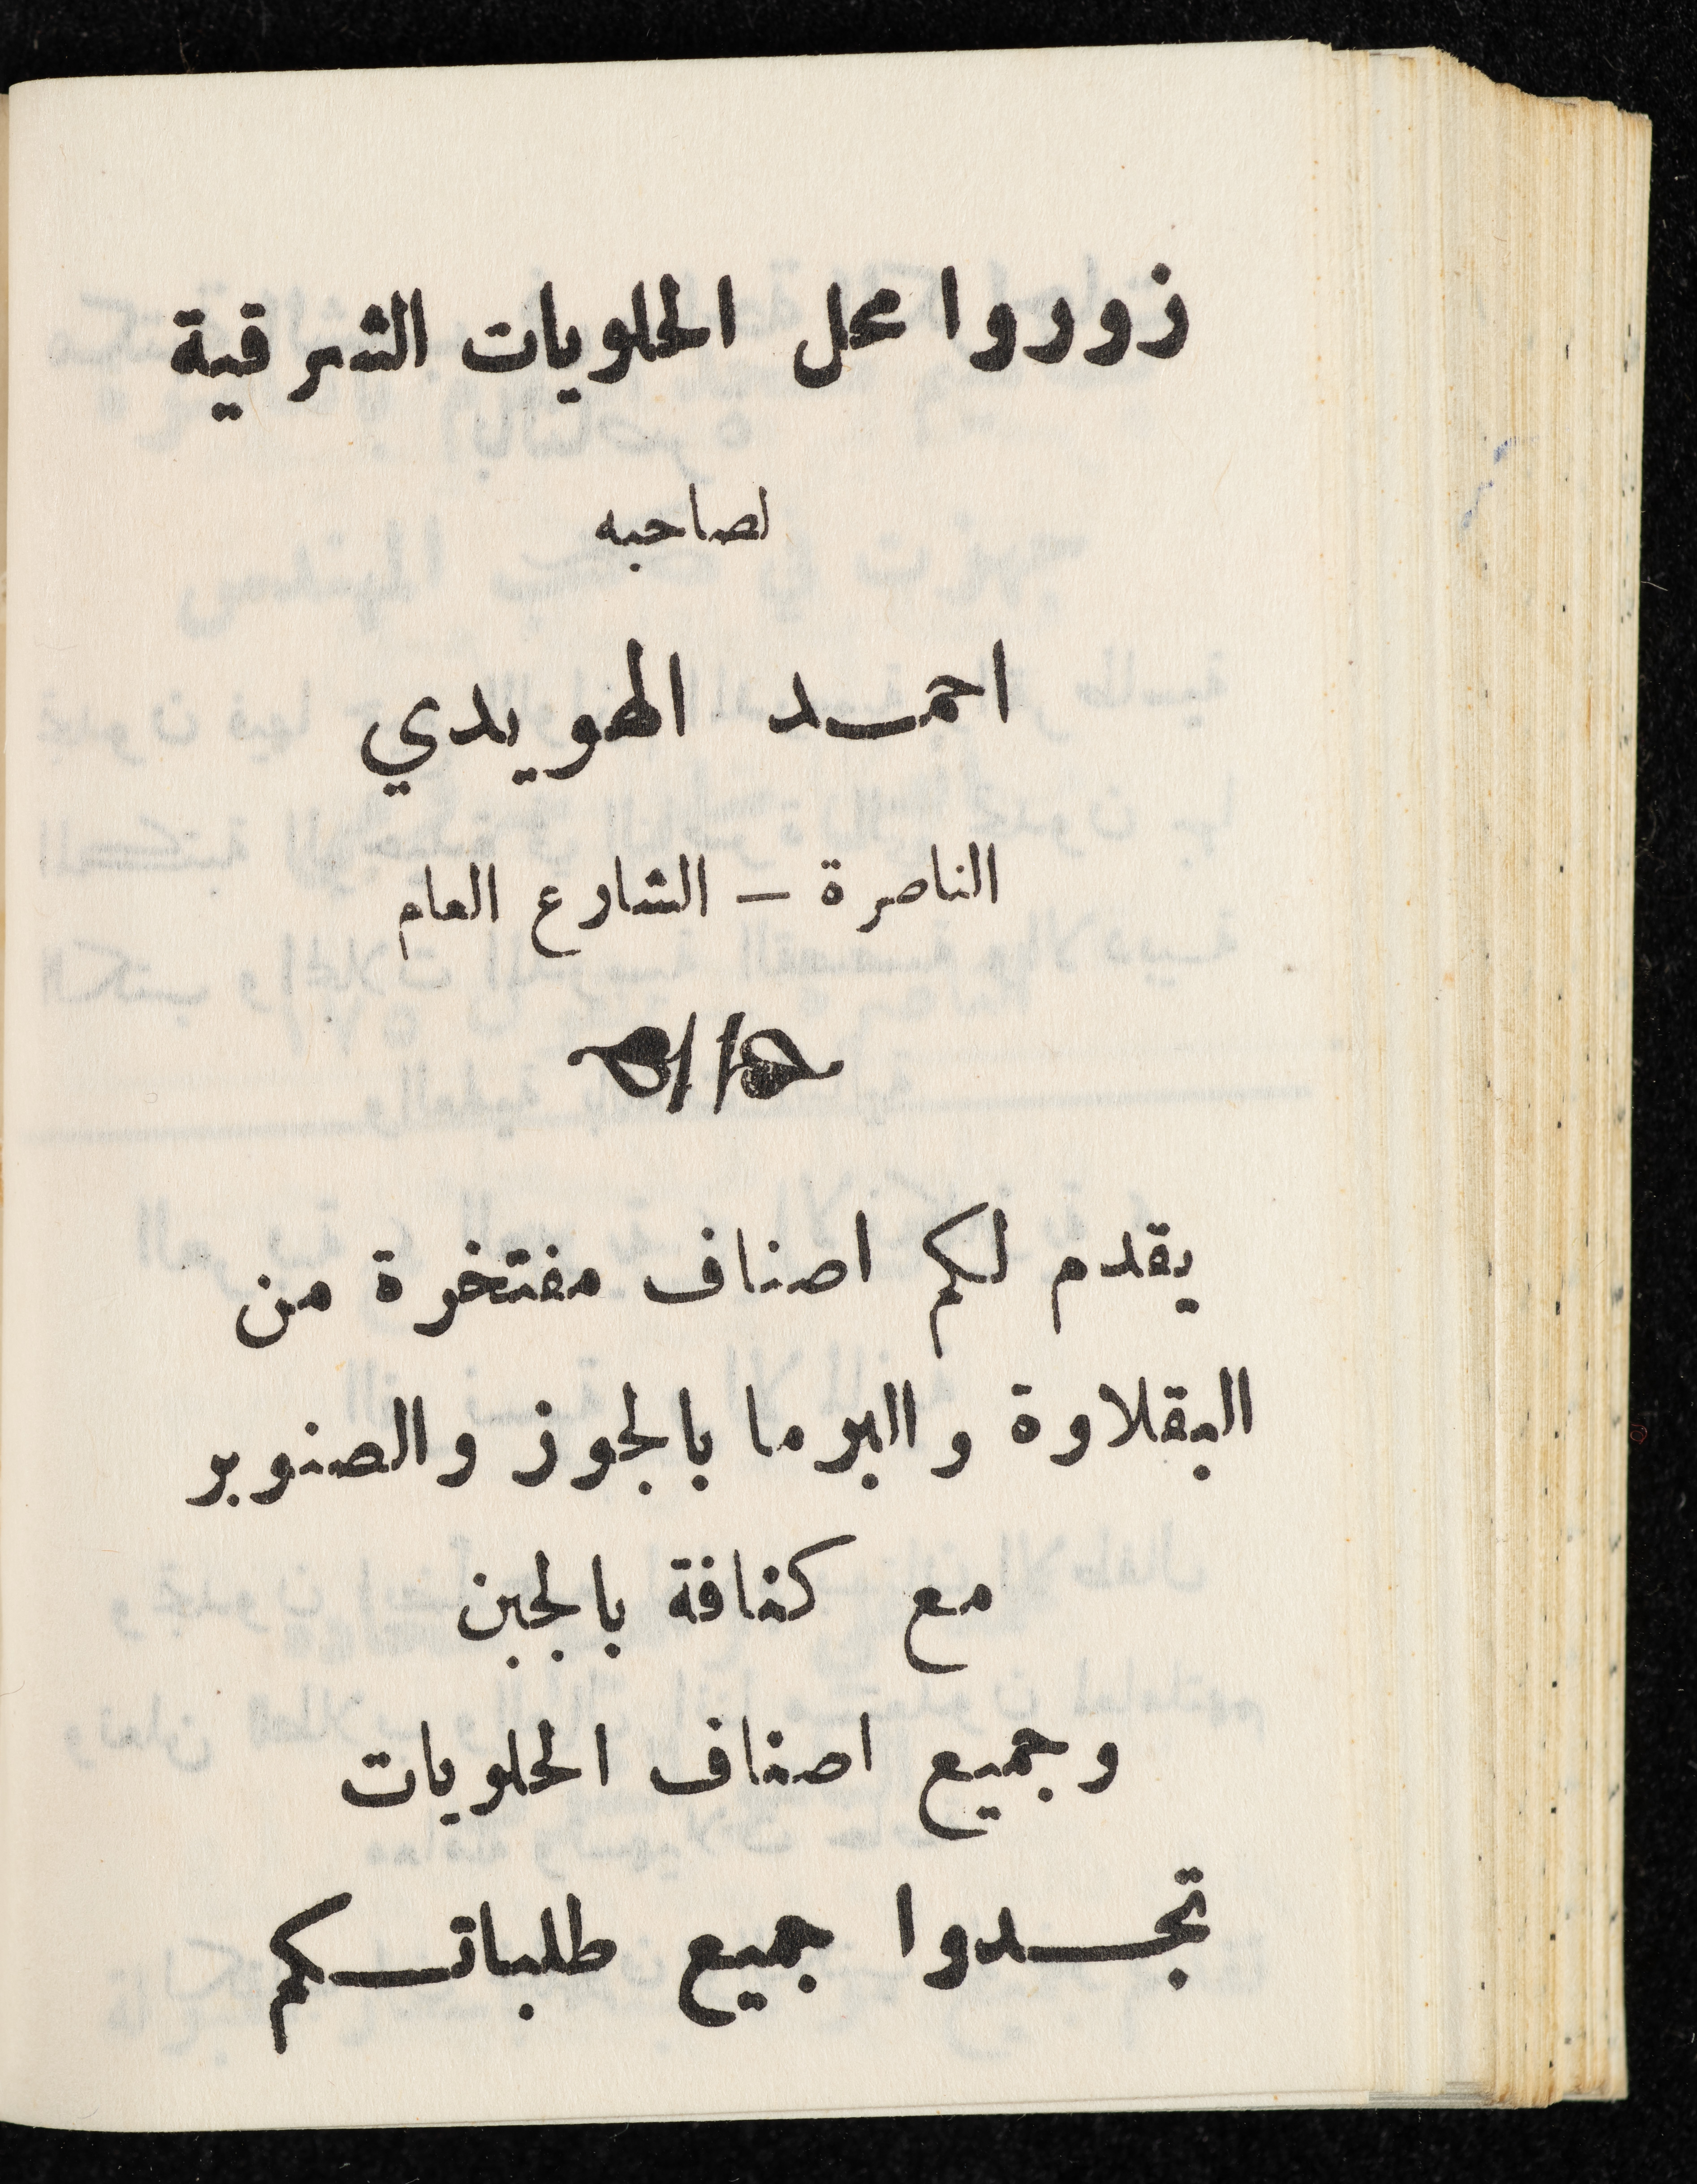 زوروا محل الحلويات الشرقية
لصاحبه
احمد الهويدي
الناصرة – الشارع العام
يقدم لكم اصناف مفتخرة من
البقلاوة والبرما بالجوز والصنوبر
مع كنافة بالجبن
وجميع اصناف الحلويات
تجدوا جميع طلباتكم